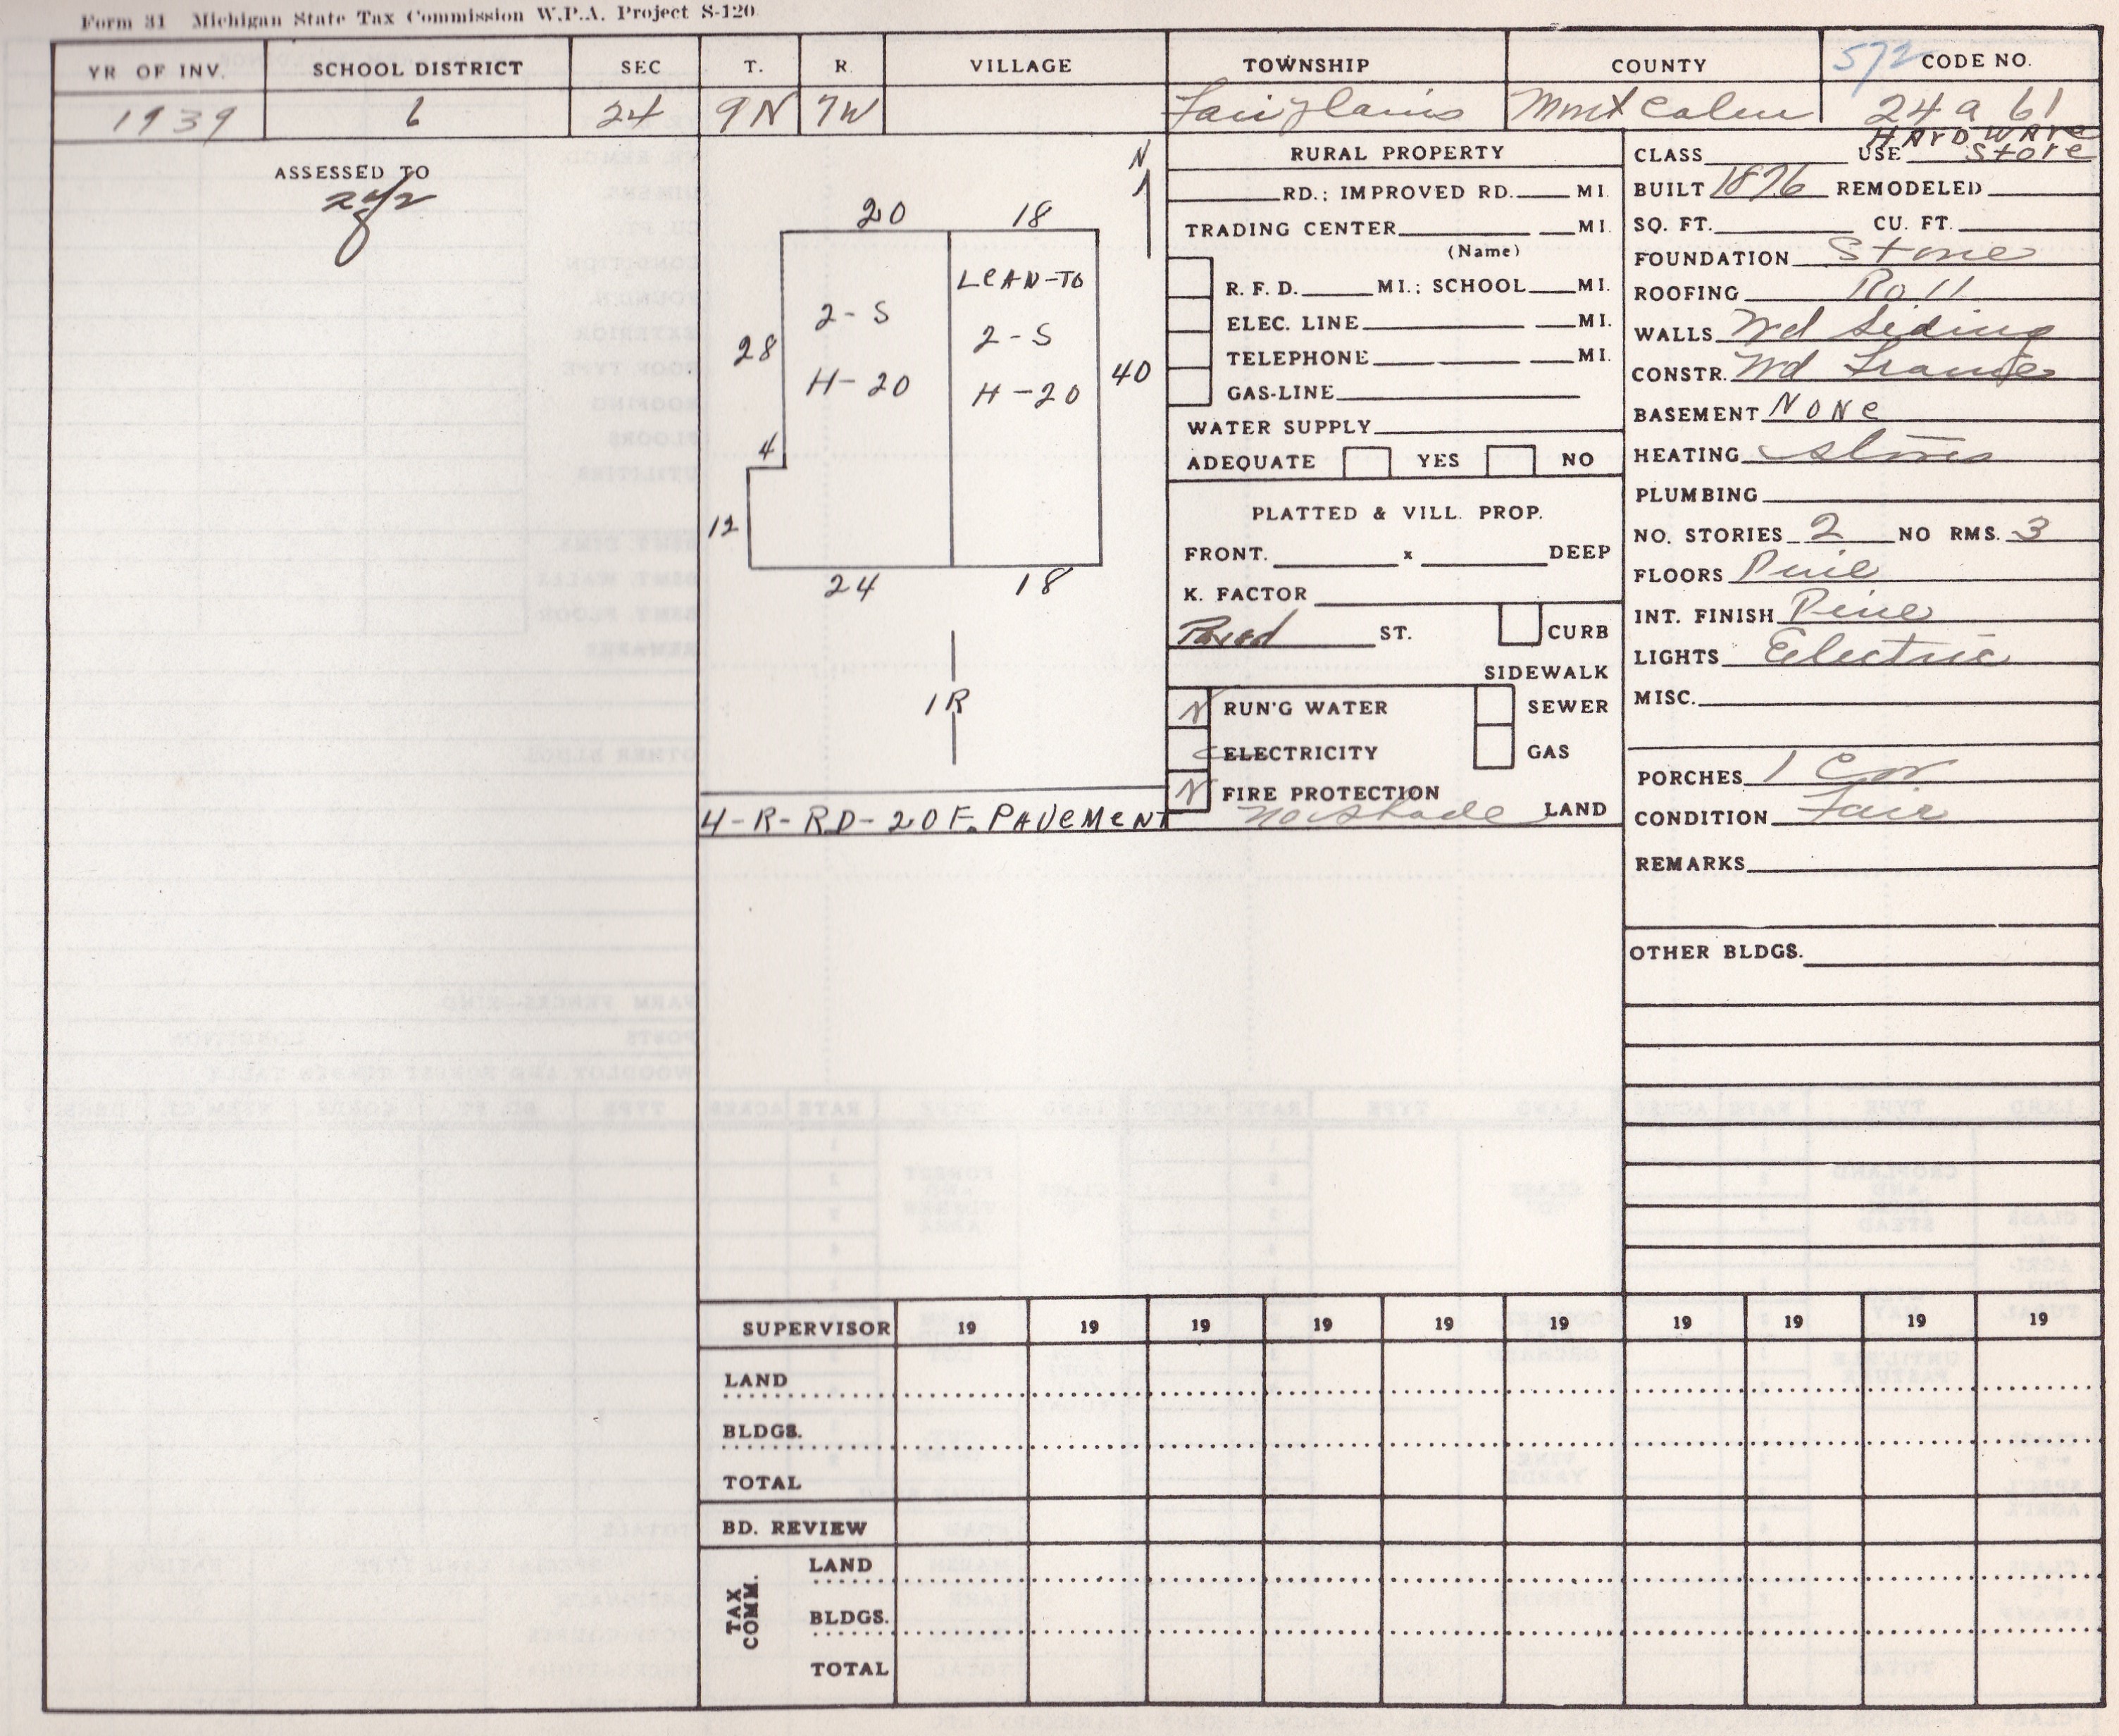 Form 31 Michigan State Tax Commission W.P.A. Project S-120
YR OF INV. SCHOOL DISTRICT SEC T. R. VILLAGE TOWNSHIP COUNTY 572 CODE NO.
1939 6 24 9N 7W Fairplains Montcalm 24 a 61
ASSESSED TO
N
20 18
LEAN-TO
2-S 2-S
28 H-20 H-20 40
4
12
24 18
1R
4-R-RD-20 F. PAVEMENT
RURAL PROPERTY
RD.; IMPROVED RD. MI.
TRADING CENTER MI.
(Name)
R. F. D. MI.; SCHOOL MI.
ELEC. LINE MI.
TELEPHONE MI.
GAS-LINE
WATER SUPPLY
ADEQUATE YES NO
PLATTED & VILL. PROP.
FRONT. x DEEP
K. FACTOR
Paved ST. CURB
SIDEWALK
N RUN'G WATER SEWER
ELECTRICITY GAS
N FIRE PROTECTION
No Shade LAND
CLASS USE HARDWARE Store
BUILT 1876 REMODELED
SQ. FT. CU. FT.
FOUNDATION Stone
ROOFING Roll
WALLS Wd Siding
CONSTR. Wd Frame
BASEMENT NONE
HEATING stoves
PLUMBING
NO. STORIES 2 NO RMS. 3
FLOORS Pine
INT. FINISH Pine
LIGHTS Electric
MISC.
PORCHES 1 Cov
CONDITION Fair
REMARKS
OTHER BLDGS.
SUPERVISOR 19 19 19 19 19 19 19 19 19
LAND
BLDGS.
TOTAL
BD. REVIEW
TAX COMM.
LAND
BLDGS.
TOTAL